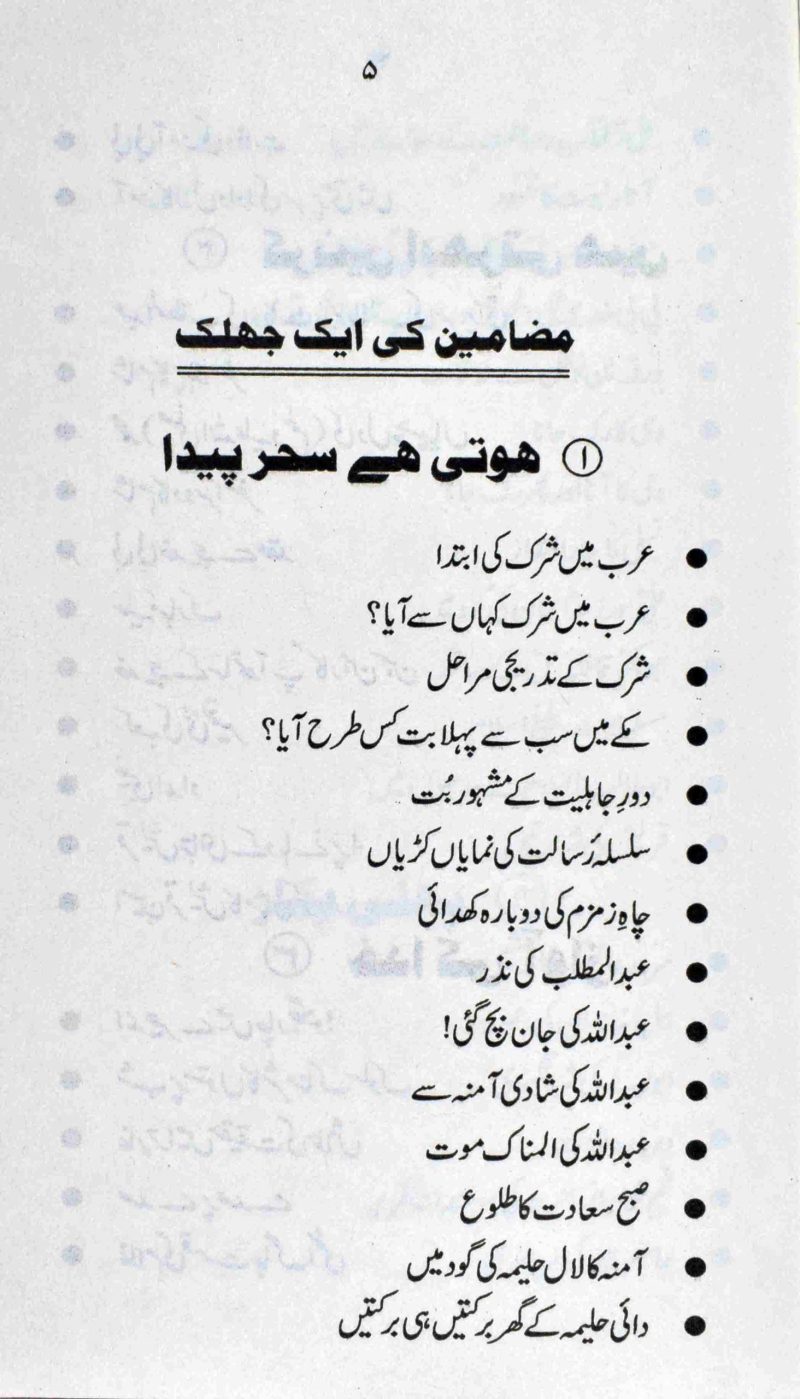 ۵
مضامین کی ایک جھلک
① ھوتی ھے سحر پیدا
● عرب میں شرک کی ابتدا
● عرب میں شرک کہاں سے آیا؟
● شرک کے تدریجی مراحل
● مکے میں سب سے پہلا بت کس طرح آیا؟
● دورِ جاہلیت کے مشہور بُت
● سلسلۂ رسالت کی نمایاں کڑیاں
● چاہِ زمزم کی دوبارہ کھدائی
● عبدالمطلب کی نذر
● عبداللہ کی جان بچ گئی!
● عبداللہ کی شادی آمنہ سے
● عبداللہ کی المناک موت
● صبح سعادت کا طلوع
● آمنہ کا لال حلیمہ کی گود میں
● دائی حلیمہ کے گھر برکتیں ہی برکتیں